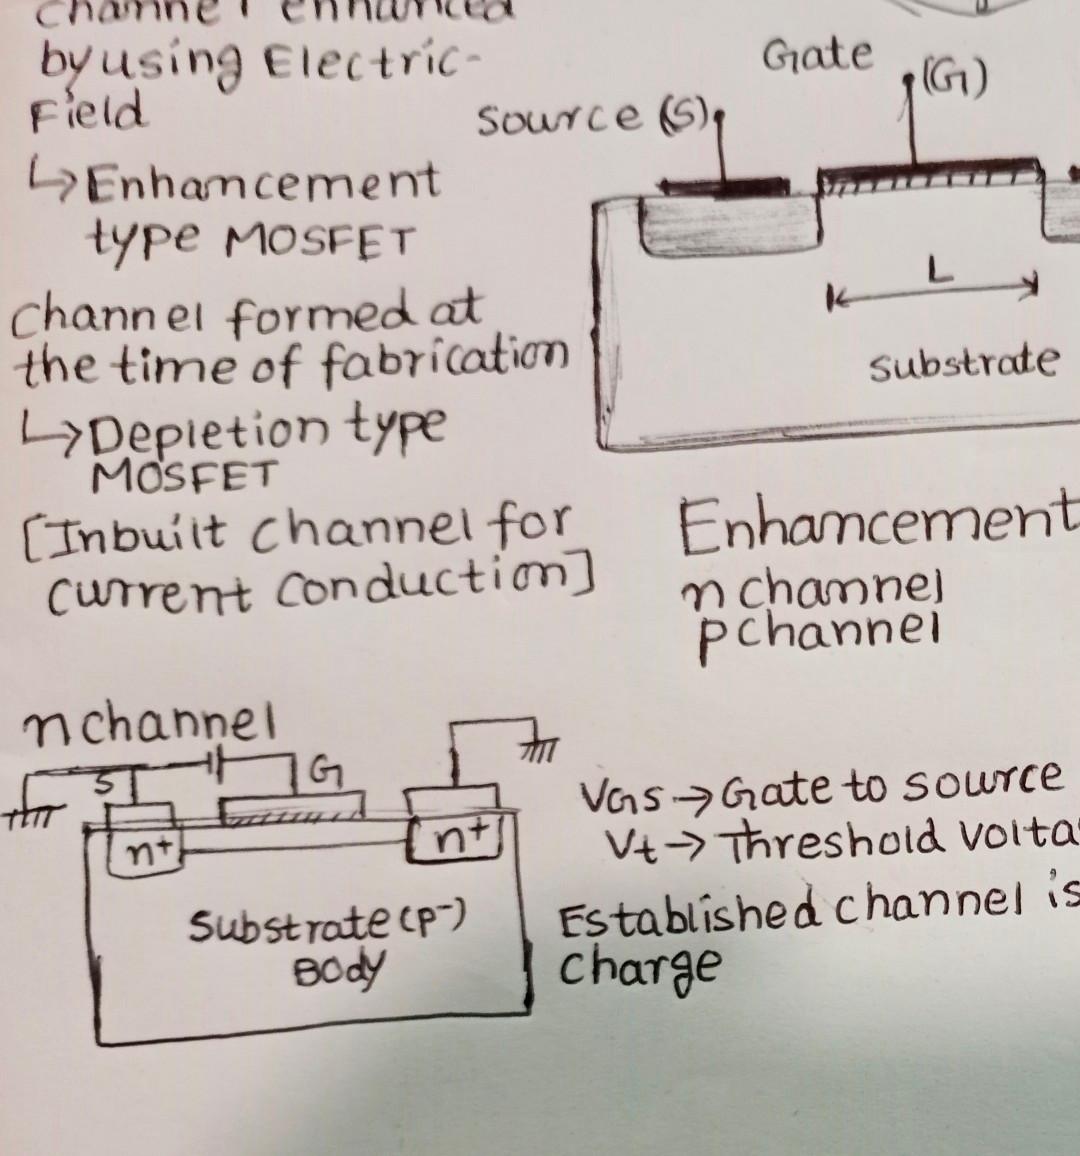 Channel enhanced
by using Electric-
Field
↳ Enhancement
type MOSFET
Channel formed at
the time of fabrication
↳ Depletion type
MOSFET
[Inbuilt channel for
current conduction]
Gate
(G)
Source (S)
L
Substrate
Enhancement
n channel
p channel
n channel
S
G
n+
n+
Substrate (p-)
BODY
VGS → Gate to source
Vt → Threshold volta
Established channel is
charge